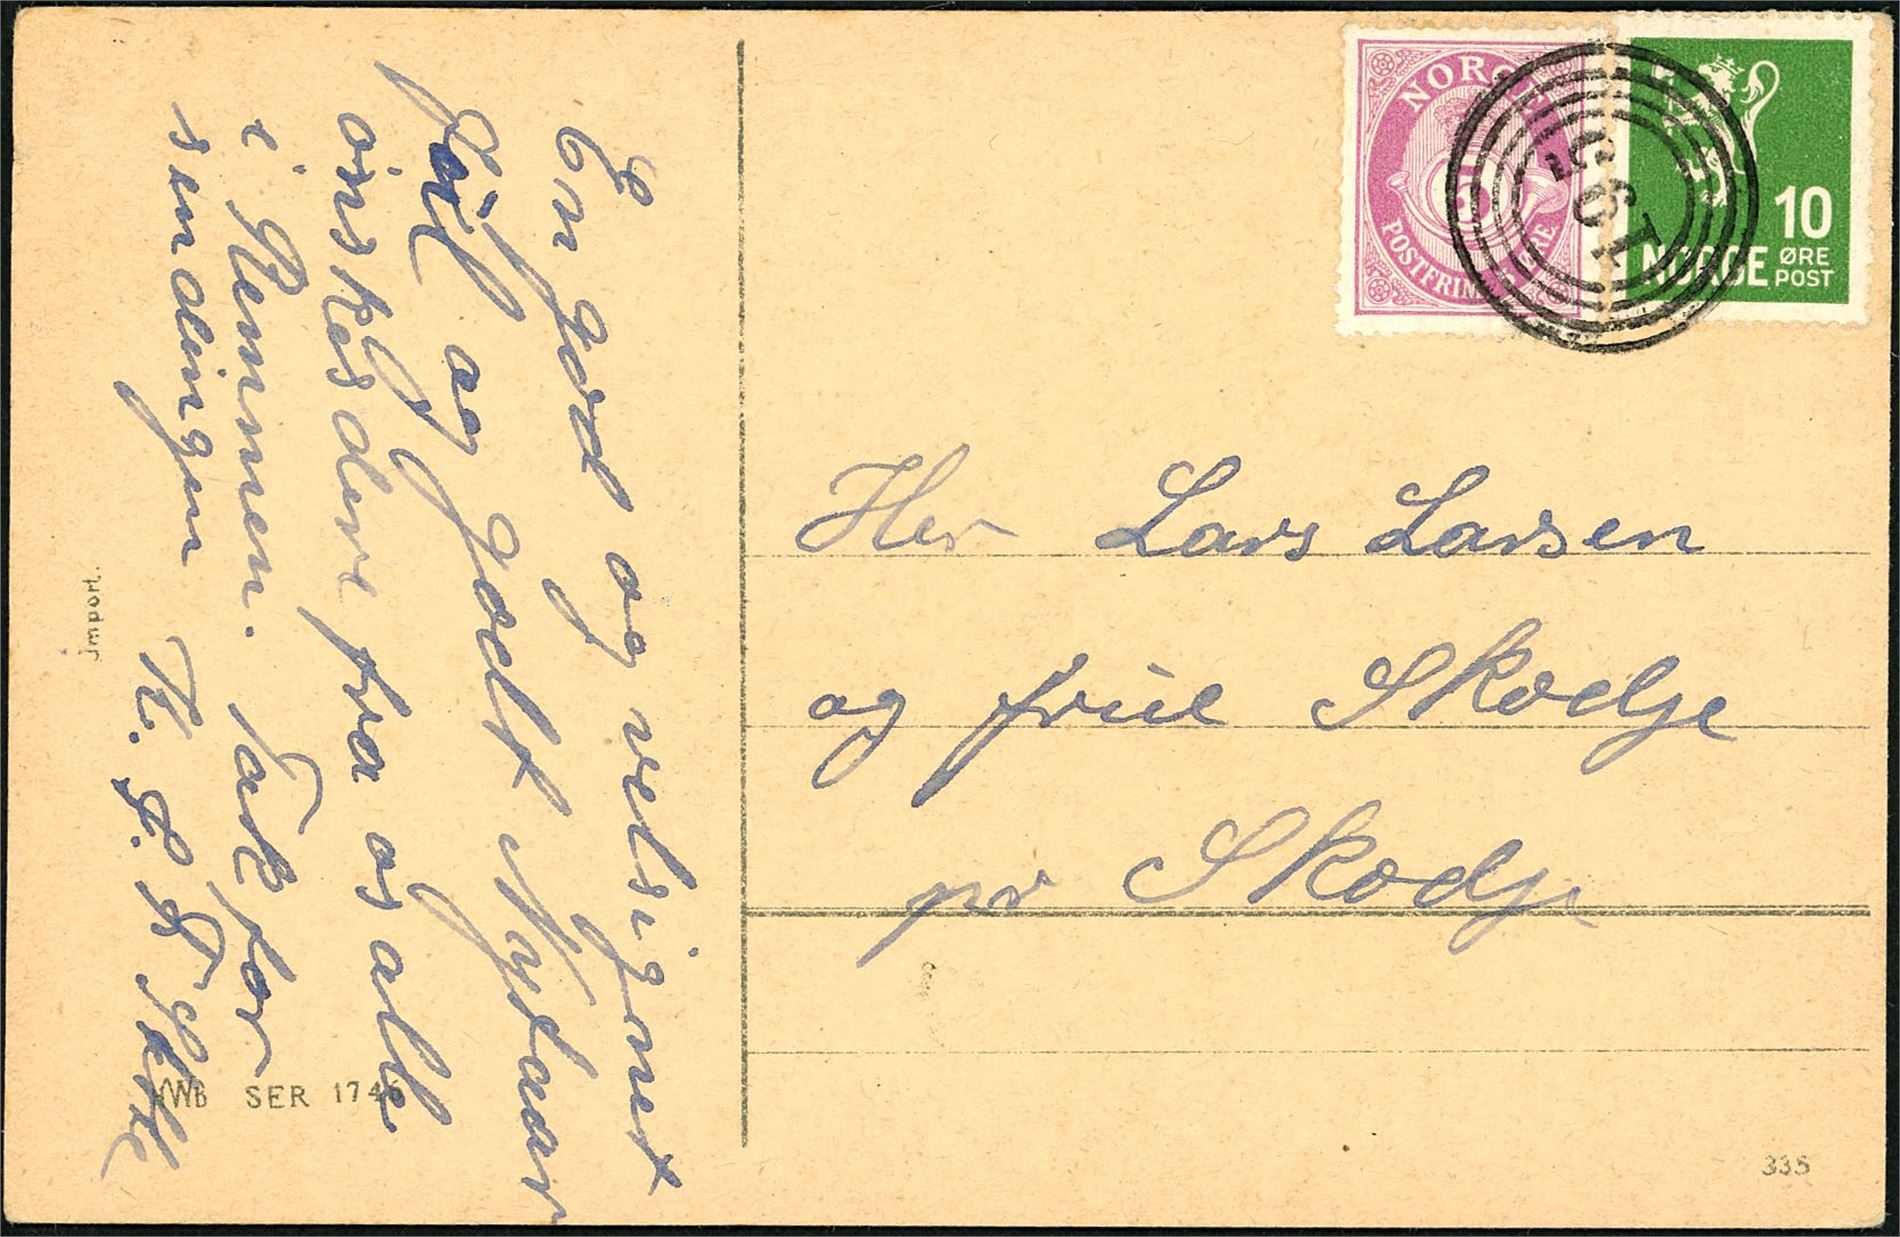 En god og velsignet
Jul og godt Nytaar
ønskes dere fra os alle
i Remmen. Takk for
sendingen K. L. S. Løkke
Import.
WB SER 1746
NORGE
POSTFRIM. ØRE
10
NORGE ØRE POST
1965
Her Lars Larsen
og frue Skodje
pr Skodje
335